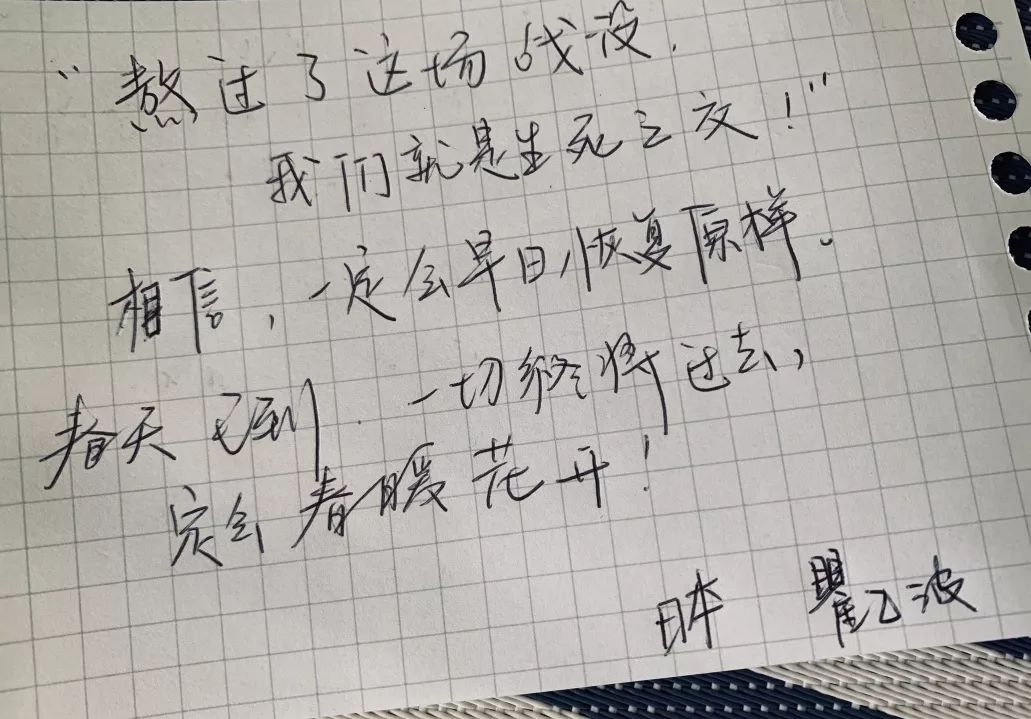 “熬过了这场战役，
我们就是生死之交！”
相信，一定会早日恢复原样。
春天已到，一切终将过去，
定会春暖花开！
日本 波